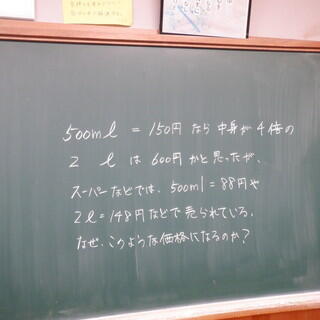 500ml = 150円 なら 中身が 4倍の
2 l は 600円かと思ったが、
スーパーなどでは、500ml=88円や
2l=148円などで売られている。
なぜ、このような価格になるのか?